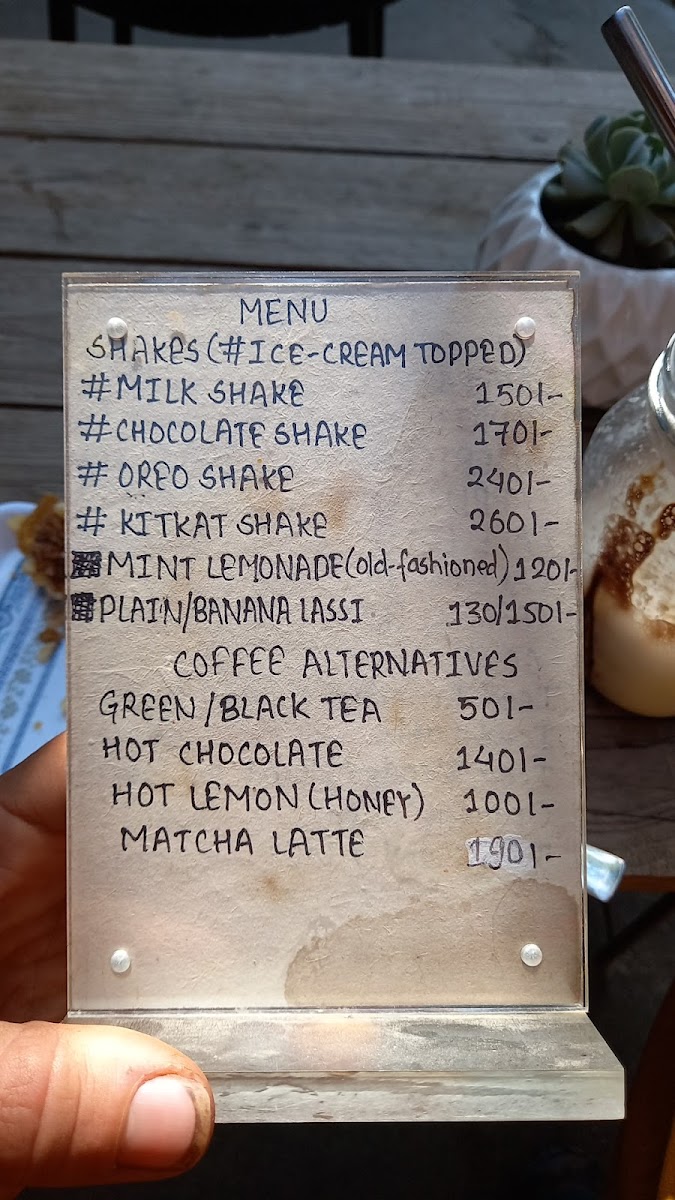 MENU
SHAKES (#ICE-CREAM TOPPED)
#MILK SHAKE 150/-
#CHOCOLATE SHAKE 170/-
# OREO SHAKE 240/-
# KITKAT SHAKE 260/-
MINT LEMONADE (old-fashioned) 120/-
PLAIN/BANANA LASSI 130/150/-
COFFEE ALTERNATIVES
GREEN/BLACK TEA 50/-
HOT CHOCOLATE 140/-
HOT LEMON (HONEY) 100/-
MATCHA LATTE 190/-